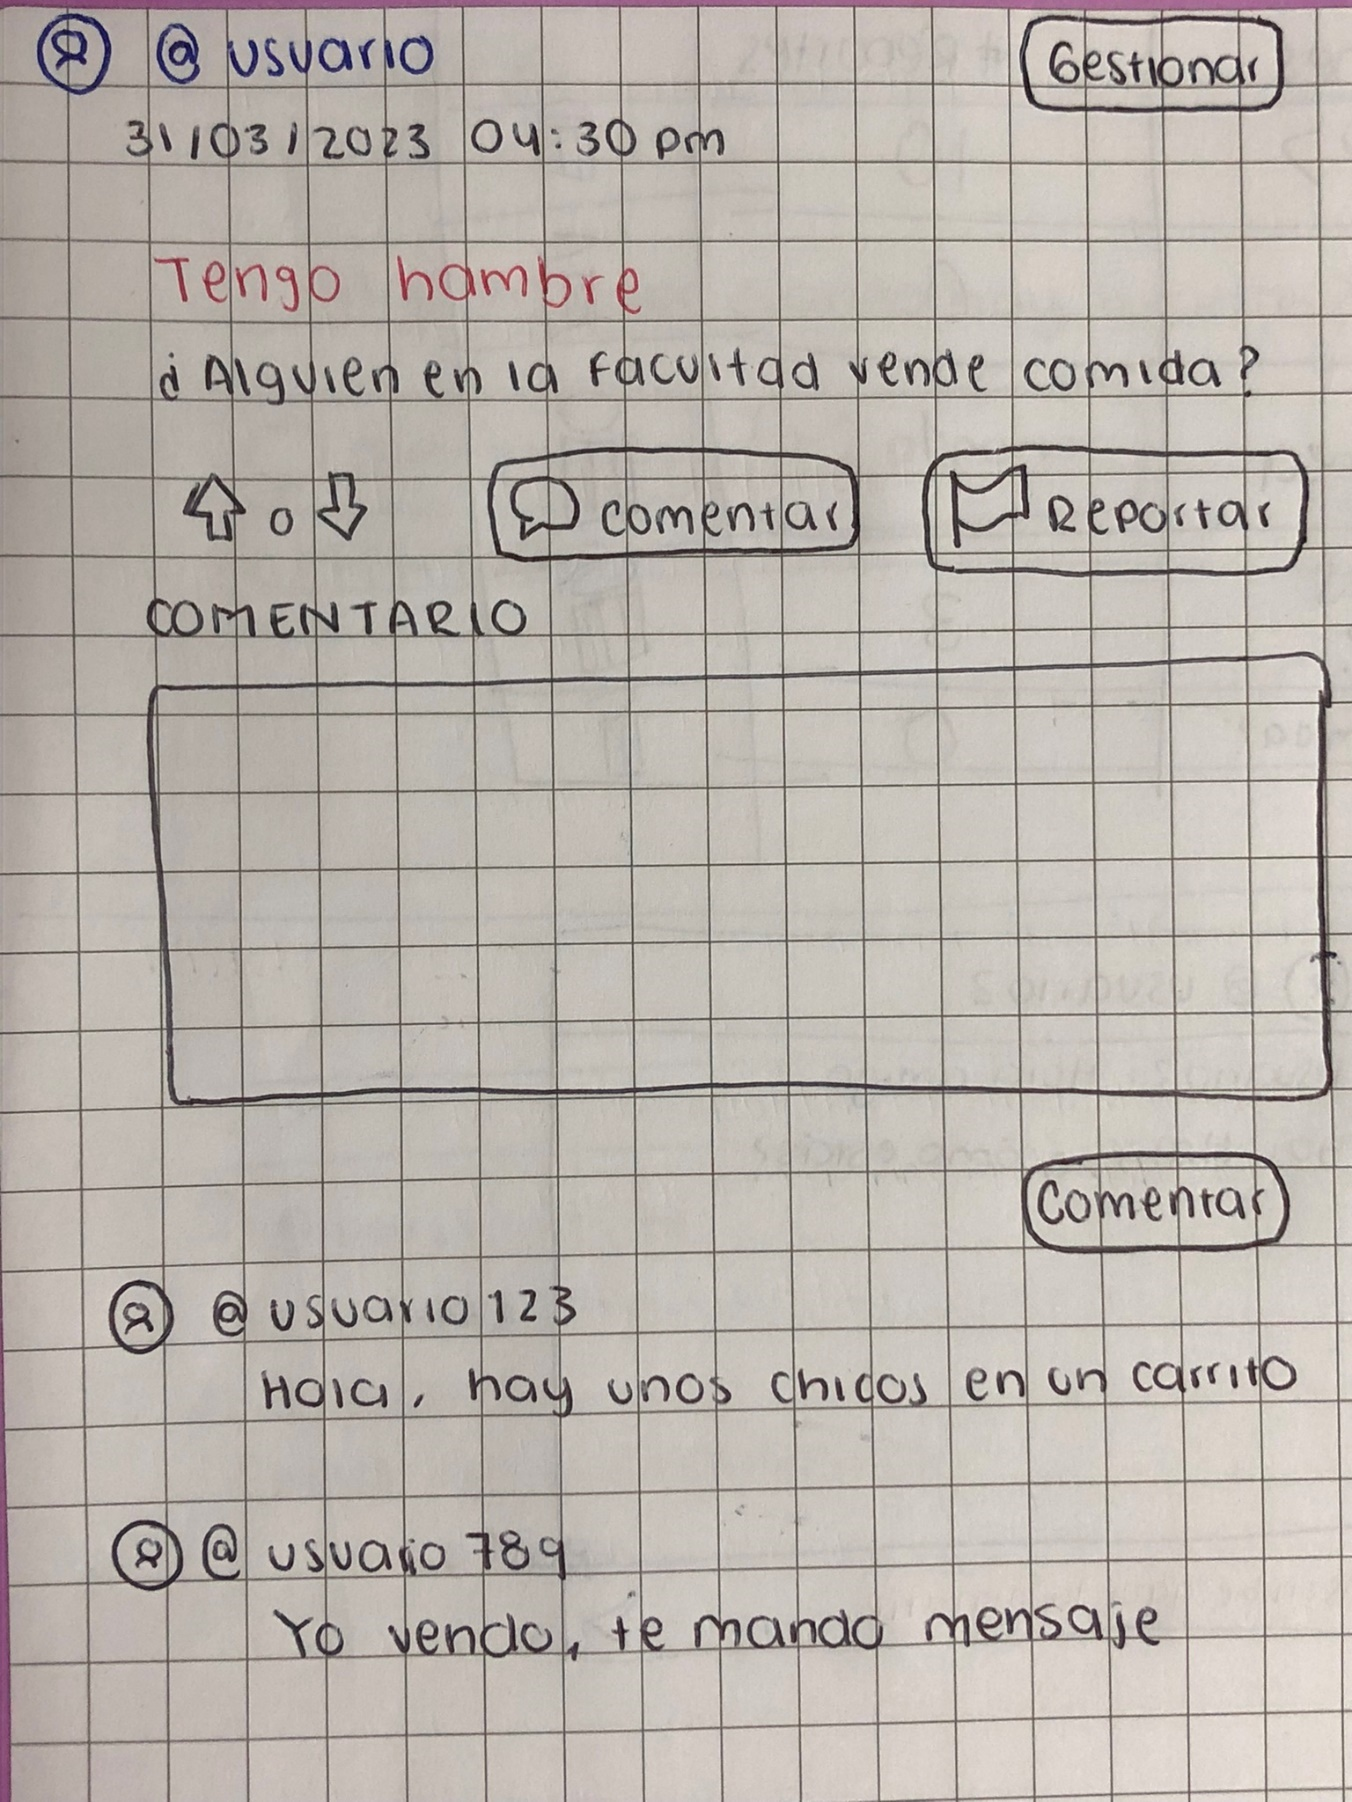 @usuario
Gestionar
31/03/2023 04:30 pm
Tengo hambre
¿Alguien en la Facultad vende comida?
0
Comentar
Reportar
COMENTARIO
Comentar
@usuario123
Hola, hay unos chicos en un carrito
@usuario789
Yo vendo, te mando mensaje